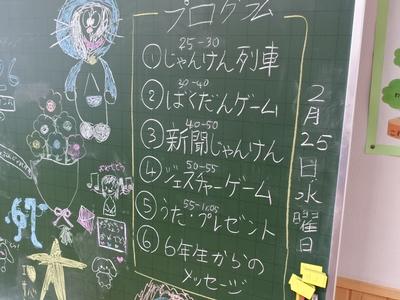 プログラム
25-30
①じゃんけん列車
30-40
②ばくだんゲーム
40-50
③新聞じゃんけん
50-55
④ジェスチャーゲーム
55-1:05
⑤うた・プレゼント
⑥6年生からの
メッセージ
2月25日水曜日